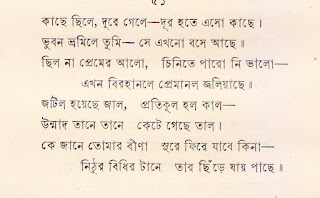 ৫১
কাছে ছিলে, দূরে গেলে—দূর হতে এসো কাছে।
ভুবন ভ্রমিলে তুমি— সে এখনো বসে আছে॥
ছিল না প্রেমের আলো, চিনিতে পারো নি ভালো—
এখন বিরহানলে প্রেমানল জ্বলিয়াছে॥
জটিল হয়েছে জাল, প্রতিকূল হল কাল—
উন্মাদ তানে তানে কেটে গেছে তাল।
কে জানে তোমার বীণা সুরে ফিরে যাবে কিনা—
নিঠুর বিধির টানে তার ছিঁড়ে যায় পাছে॥